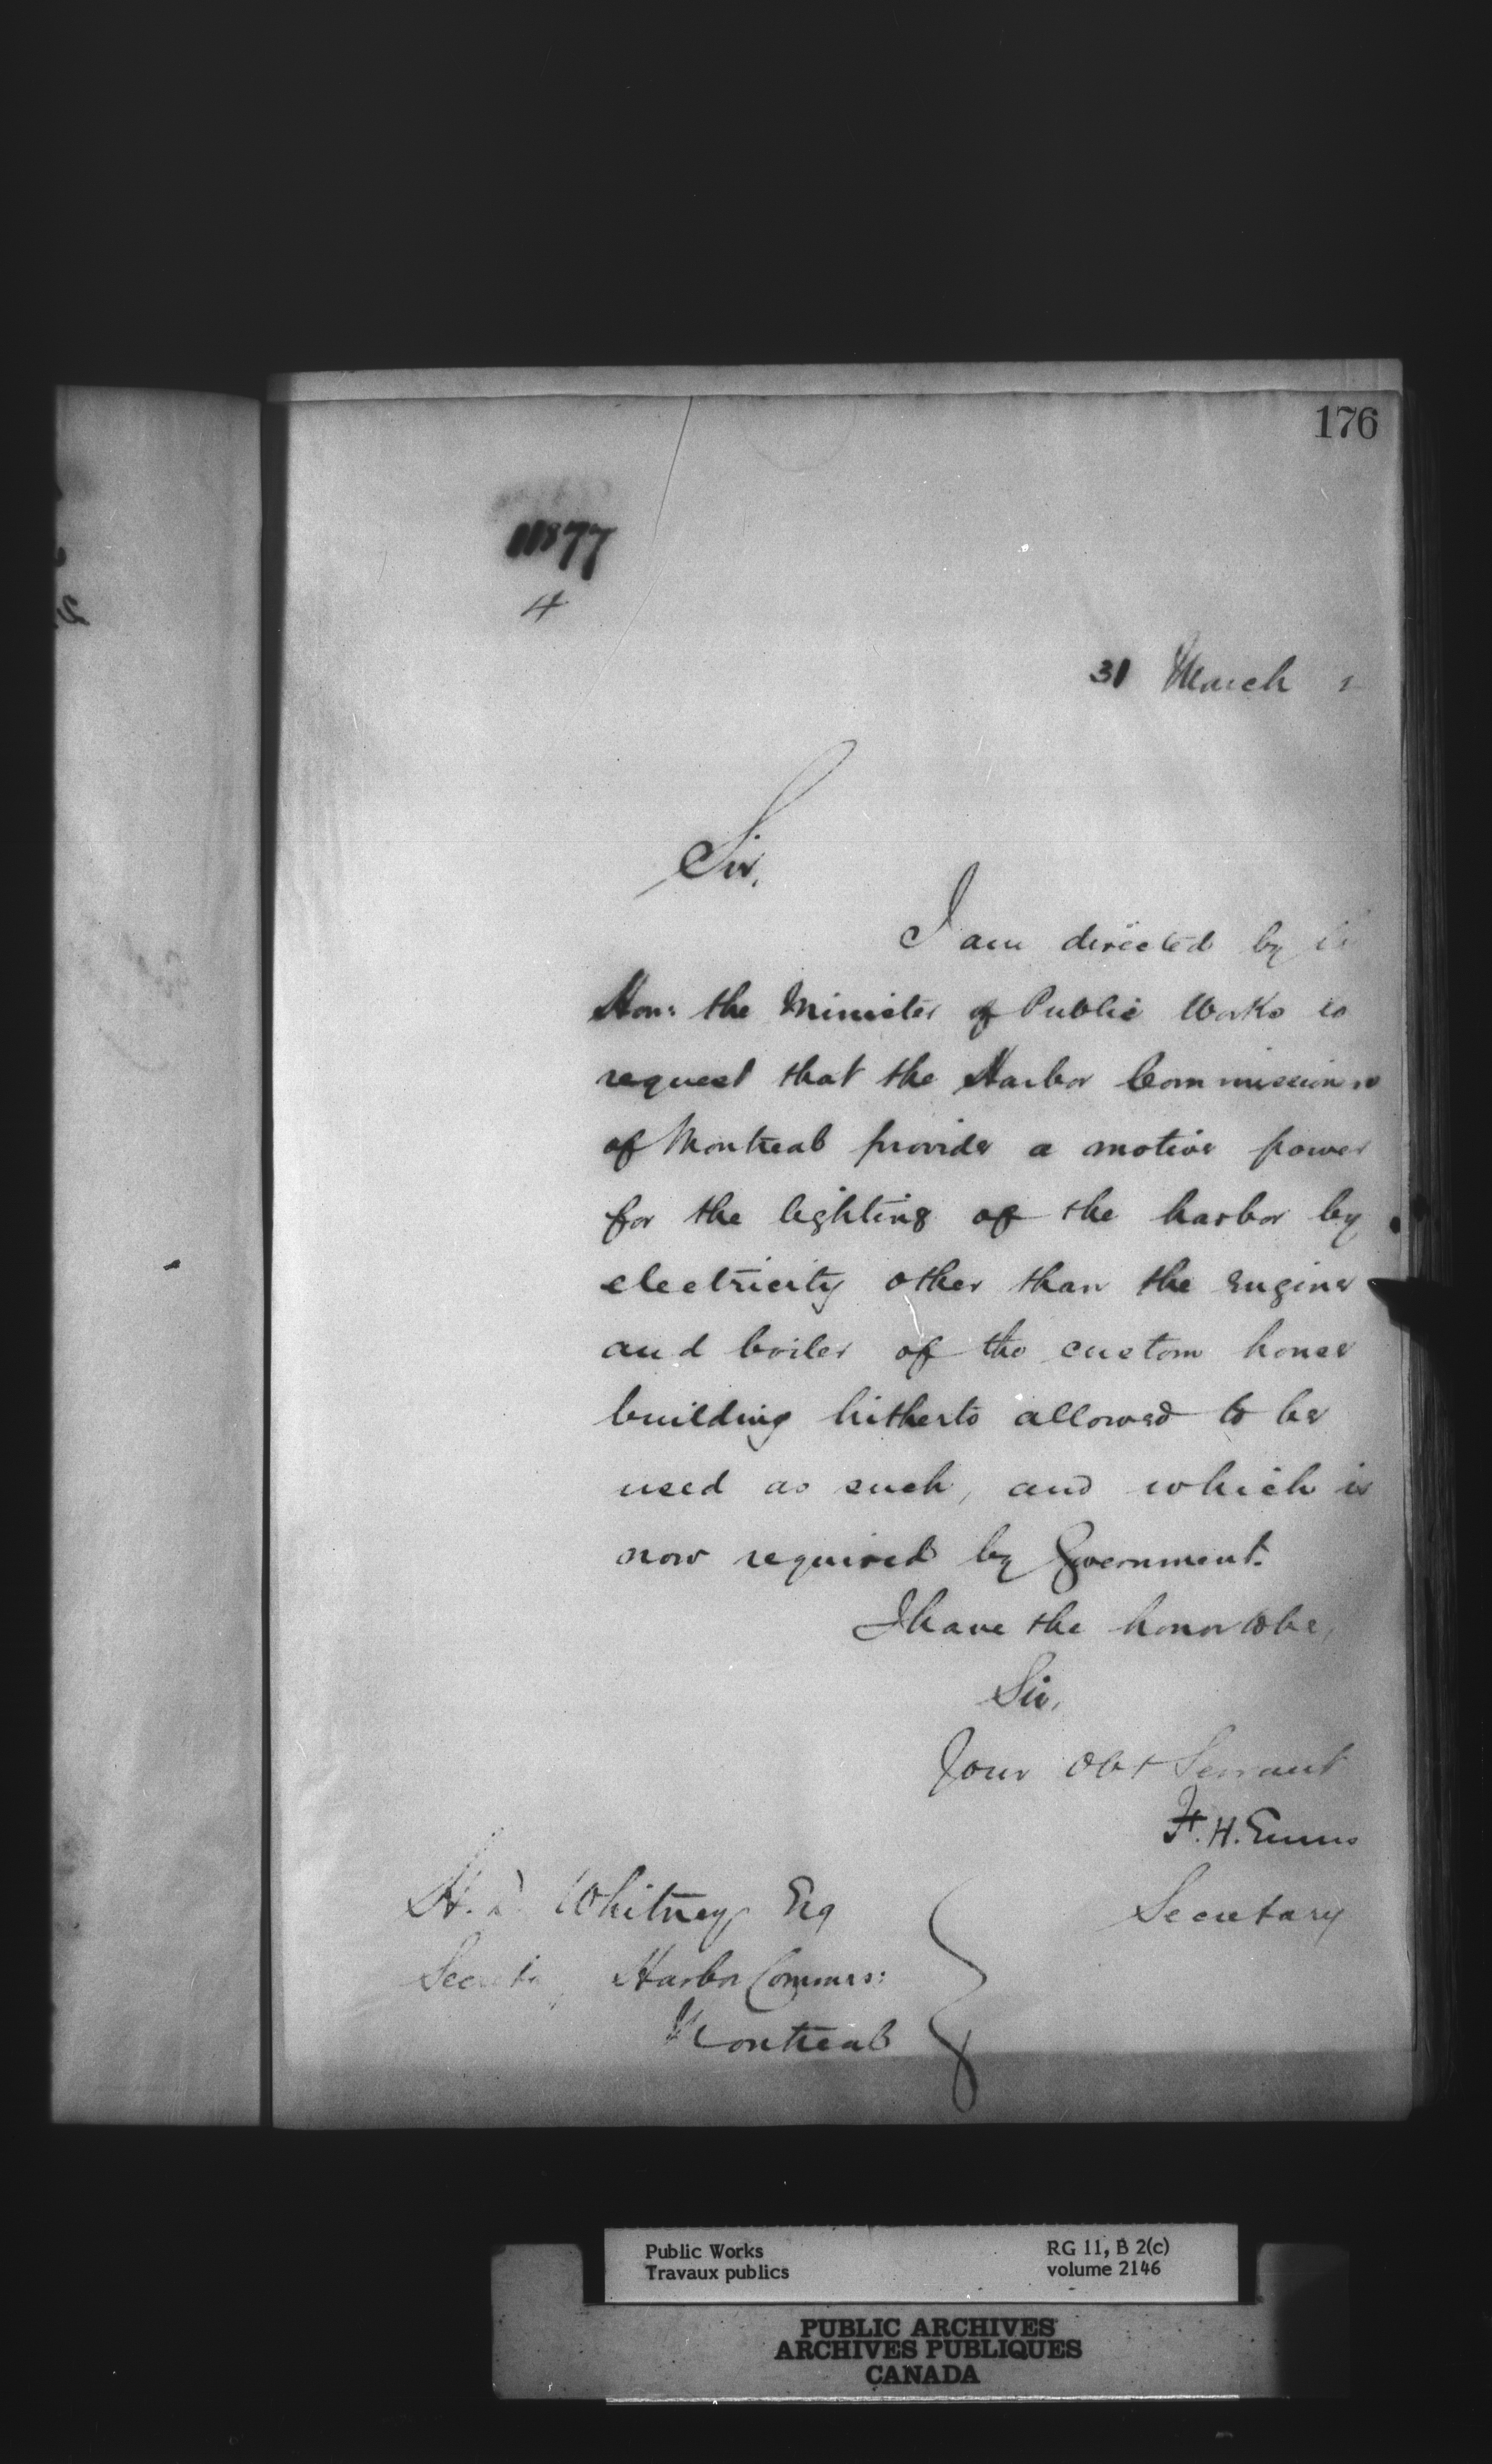 176
11877
4
31 March
Sir,
I am directed by
Hon: the Minister of Public Works to
request that the Harbor Commissioners
of Montreal provide a motive power
for the lighting of the harbor by
electricity other than the engine
and boiler of the custom house
building hitherto allowed to be
used as such, and which is
now required by Government.
I have the honor to be,
Sir,
Your Obt Servant
F. H. Ennis
Secretary
H. D. Whitney Esq
Harbor Commrs:
Montreal
Public Works
Travaux publics
RG 11, B 2(c)
volume 2146
PUBLIC ARCHIVES
ARCHIVES PUBLIQUES
CANADA